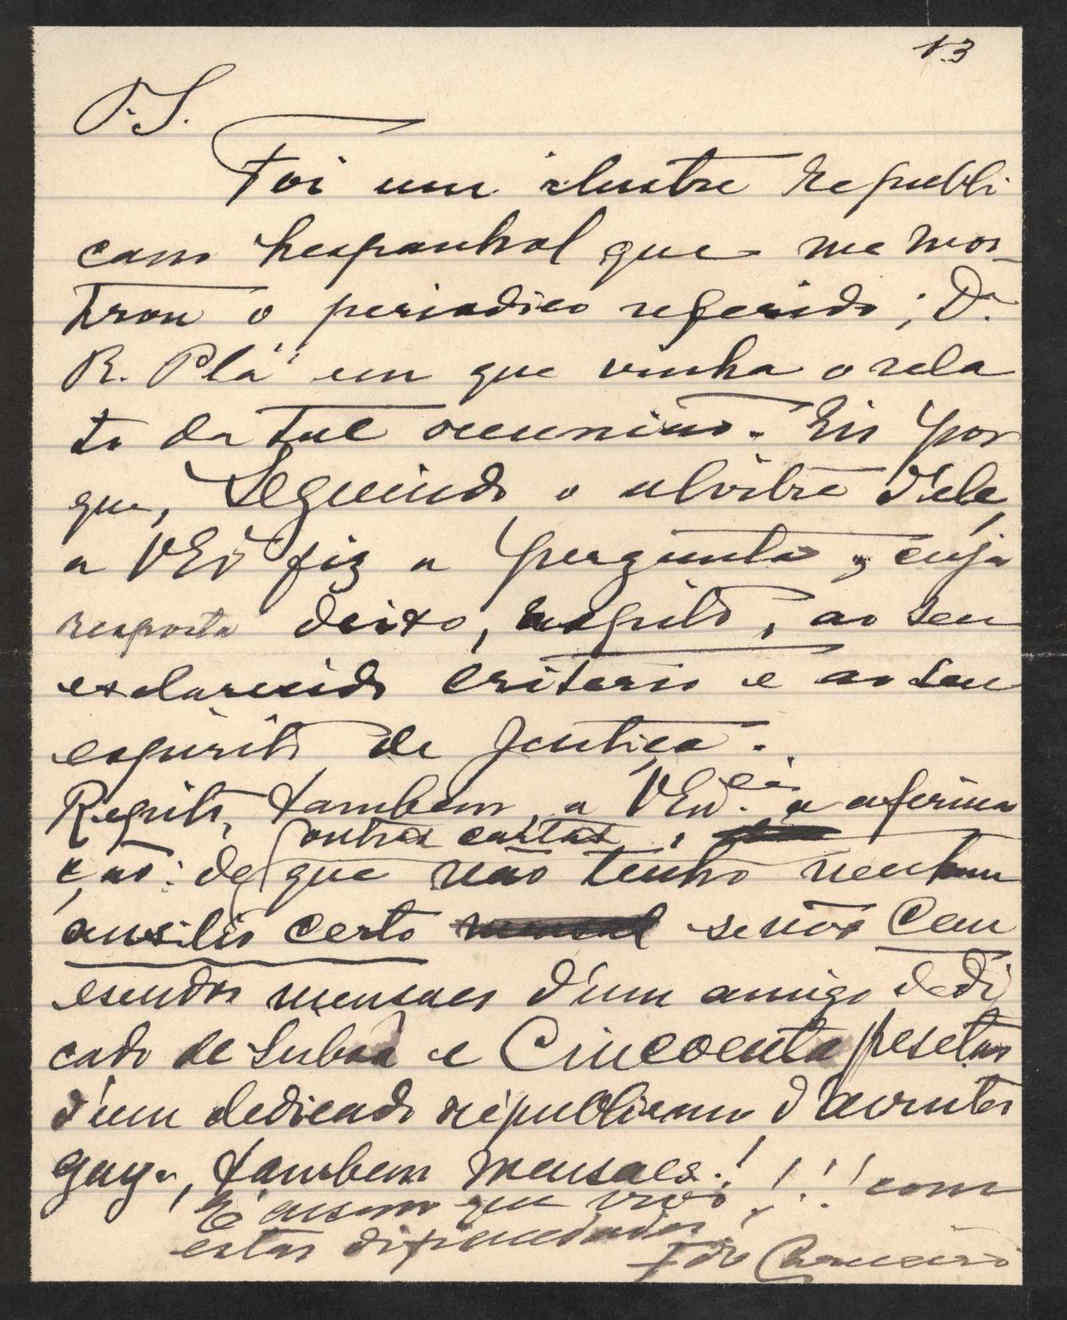 13
P.S.
Foi um ilustre republi
cano hespanhol que me mos
trou o periodico referido; D.
R. Plá em que vinha o rela
to da tal reunião. Eis por
que, seguindo o alvitre d'ele,
a VEx fiz a pergunta, cuja
resposta deixo, repito, ao seu
esclarecido criterio e ao seu
espirito de justiça.
Repito, tambem, a VEx.cia a afirma
outras cartas,
ção: de que não tenho nenhum
auxilio certo senão Cem
escudos mensaes d'um amigo dedi
cado de Lisboa e Cincoenta pesetas
d'um dedicado republicano d'
tambem mensaes! ! ! ! com
E' assim que vivo
estas dificuldades!